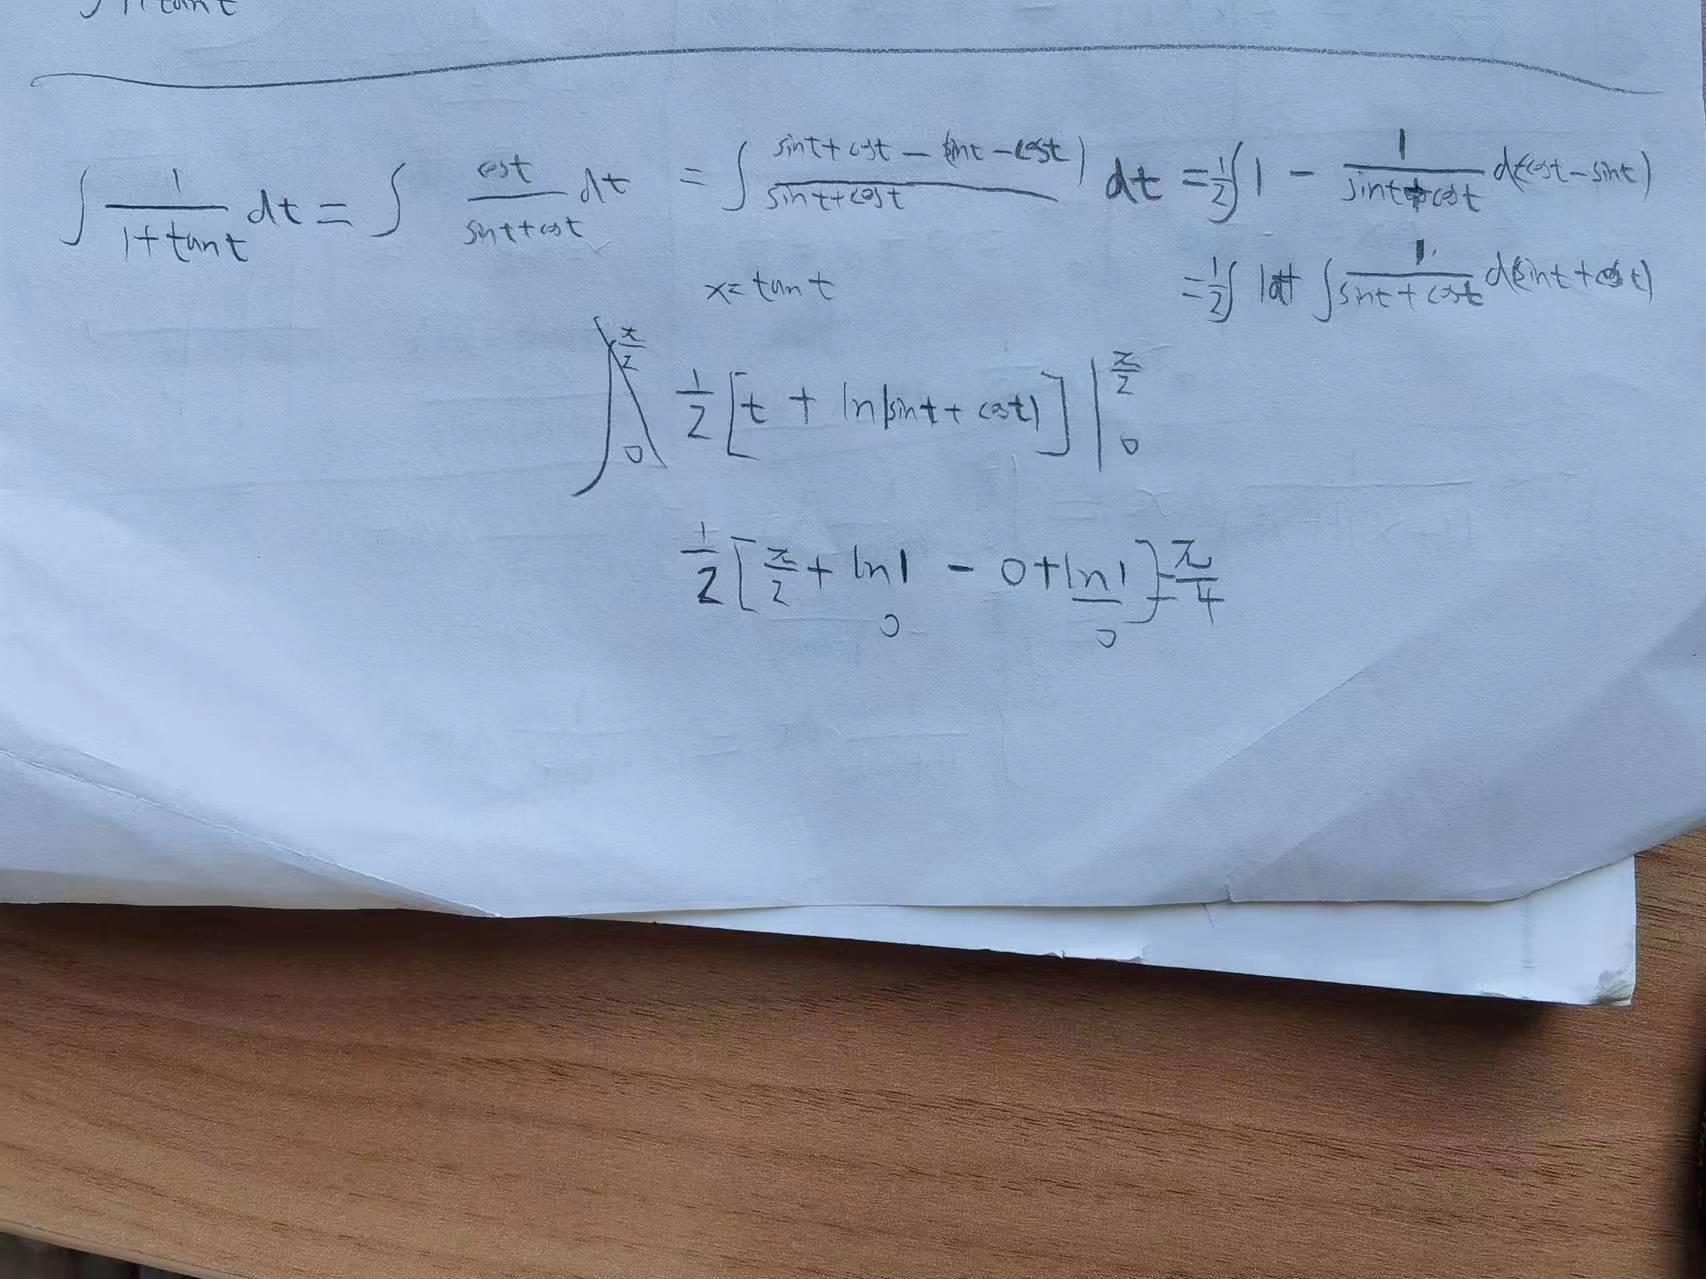 ∫ 1+tan t
∫ 1/(1+tan t) dt = ∫ cost/(sint+cost) dt = ∫ (sint+cost-(sint-cost))/(sint+cost) dt = 1/2 ∫ 1 - 1/(sint+cost) d(cost-sint)
x = tan t
= 1/2 ∫ 1dt ∫ 1/(sint+cost) d(sint+cost)
1/2 [t + ln|sint+cost|] | π/2 0
1/2 [π/2 + ln1 - 0+ln1] = π/4
0 0